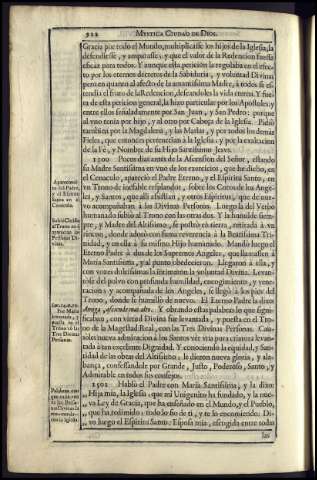 922 MYSTICA CIUDAD DE DIOS.
Gracia por todo el Mundo, multiplicasse los hijos de la Iglesia, la
defendiesse, y amparasse: y que el valor de la Redencion fuesse
eficàz para todos. Y aunque esta peticion la regulaba en el efec-
to por los eternos decretos de la Sabiduria, y voluntad Divina;
pero en quanto al afecto de la amantissima Madre, à todos se es-
tendia el fruto de la Redencion, deseandoles la vida eterna. Y fue-
ra de esta peticion general, la hizo particular por los Apostoles: y
entre ellos señaladamente por San Juan, y San Pedro: porque
al uno tenia por hijo, y al otro por Cabeça de la Iglesia. Pidiò
tambien por la Magdalena, y las Marias, y por todos los demàs
Fieles, que entonces pertenecian à la Iglesia: y por la exaltacion
de la Fè, y Nombre de su Hijo Santissimo JESVS.
1500 Pocos dias antes de la Ascension del Señor, estando
su Madre Santissima en vno de los exercicios, que he dicho, en
el Cenaculo, apareciò el Padre Eterno, y el Espiritu Santo, en
vn Trono de inefable resplandor, sobre los Coros de los Ange-
les, y Santos, que alli assistian, y otros Espiritus, que de nue-
vo acompañaban à las Divinas Personas. Luego la del Verbo
humanado subiò al Trono con las otras dos. Y la humilde siem-
pre, y Madre del Altissimo, se postrò en tierra, retirada à vn
rincon, donde adorò con suma reverencia à la Beatissima Tri-
nidad, y en ella à su mismo Hijo humanado. Mandò luego el
Eterno Padre à dos de los supremos Angeles, que llamassen à
Maria Santissima, y al punto obedecieron. Llegaron à ella, y
con vozes dulcissimas la intimaron la voluntad Divina. Levan-
tose del polvo con profunda humildad, encogimiento, y vene-
racion; y acompañada de los Angeles, se llegò à los pies del
Trono, donde se humillò de nuevo. El Eterno Padre la dixo:
Amiga, asciende mas alto. Y obrando estas palabras lo que signi-
ficaban, con virtud Divina fue levantada, y puesta en el Tro-
no de la Magestad Real, con las Tres Divinas Personas. Cau-
sòles nueva admiracion à los Santos vèr vna pura criatura levan-
tada à tan excelente Dignidad. Y conociendo la equidad, y San-
tidad de las obras del Altissimo, le dieron nueva gloria, y ala-
bança, confessandole por Grande, Justo, Poderoso, Santo, y
Admirable en todos sus consejos.
1501 Hablò el Padre con Maria Santissima, y la dixo:
,, Hija mia, la Iglesia, que mi Unigenito ha fundado, y la nue-
,, va Ley de Gracia, que ha enseñado en el Mundo, y el Pueblo,
,, que ha redimido: todo lo fio de ti, y te lo encomiendo: Di-
,, xo luego el Espiritu Santo: Esposa mia, escogida entre todas
las